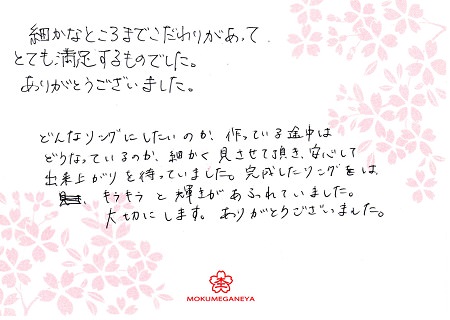 細かなところまでこだわりがあって
とても満足するものでした。
ありがとうございました。
どんなリングにしたいのか、作っている途中は
どうなっているのか、細かく見させて頂き、安心して
出来上がりを待っていました。完成したリングをは
キラキラと輝きがあふれていました。
大切にします。ありがとうございました。
MOKUMEGANEYA